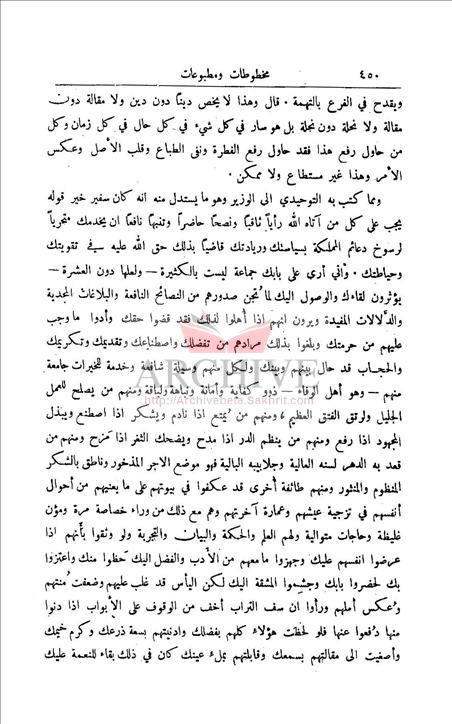 ٤٥٠ مخطوطات ومطبوعات
ويقدح في الفرع بالتهمة . قال وهذا لا يخص ديناً دون دين ولا مقالة دون
مقالة ولا نحلة دون نحلة بل هو سار في كل شيء في كل حال في كل زمان وكل
من حاول رفع هذا فقد حاول رفع الفطرة ونفى الطباع وقلب الأصل وعكس
الأمر وهذا غير مستطاع ولا ممكن .
ومما كتب به التوحيدي الى الوزير وهو ما يستدل منه انه كان سفير خير قوله
يجب على كل من آتاه الله رأياً ثاقباً ونصحاً حاضراً وتنبهاً نافعاً ان يخدمك متحرياً
لرسوخ دعائم المملكة بسياستك وريادتك قاضياً بذلك حق الله عليه في تقويتك
وحياطتك . وأني أرى على بابك جماعة ليست بالكثيرة — ولعلها دون العشرة —
يؤثرون لقاءك والوصول اليك لما تجن صدورهم من النصائح النافعة والبلاغات المجدية
والدلالات المفيدة ويرون انهم اذا أهلوا لذلك فقد قضوا حقك وأدوا ما وجب
عليهم من حرمتك وبلغوا بذلك مرادهم من تفضلك واصطناعك وتقديمك وتكريمك
والحجاب قد حال بينهم وبينك ولكل منهم وسيلة شافعة وخدمة للخيرات جامعة
منهم — وهو أهل الوفاء — ذوو كفاية وأمانة ونباهة ولباقة ومنهم من يصلح للعمل
الجليل ولرتق الفتق العظيم ، ومنهم من يمتع اذا نادم ويشكر اذا اصطنع ويبذل
المجهود اذا رفع ومنهم من ينظم الدر اذا مدح ويضحك الثغر اذا مزح ومنهم من
قعد به الدهر لسنه العالية وجلابيبه البالية فهو موضع الاجر المذخور وناطق بالشكر
المنظوم والمنثور ومنهم طائفة أخرى قد عكفوا في بيوتهم على ما يعنيهم من أحوال
أنفسهم في تزجية عيشهم وعمارة آخرتهم وهم مع ذلك من وراء خصاصة مرة ومؤن
غليظة وحاجات متوالية ولهم العلم والحكمة والبيان والتجربة ولو وثقوا بأنهم اذا
عرضوا انفسهم عليك وجهزوا ما معهم من الأدب والفضل اليك حظوا منك واعتزوا
بك لحضروا بابك وجشموا المشقة اليك لكن اليأس قد غلب عليهم وضعفت منتهم
وعكس أملهم ورأوا ان سف التراب أخف من الوقوف على الأبواب اذا دنوا
منها دفعوا عنها فلو لحظت هؤلاء كلهم بفضلك وادنيتهم بسعة ذرعك وكرم خيمك
وأصغيت الى مقالتهم بسمعك وقابلتهم بملء عينك كان في ذلك بقاء للنعمة عليك
ARCHIVE
http://Archivebeta.Sakhrit.com